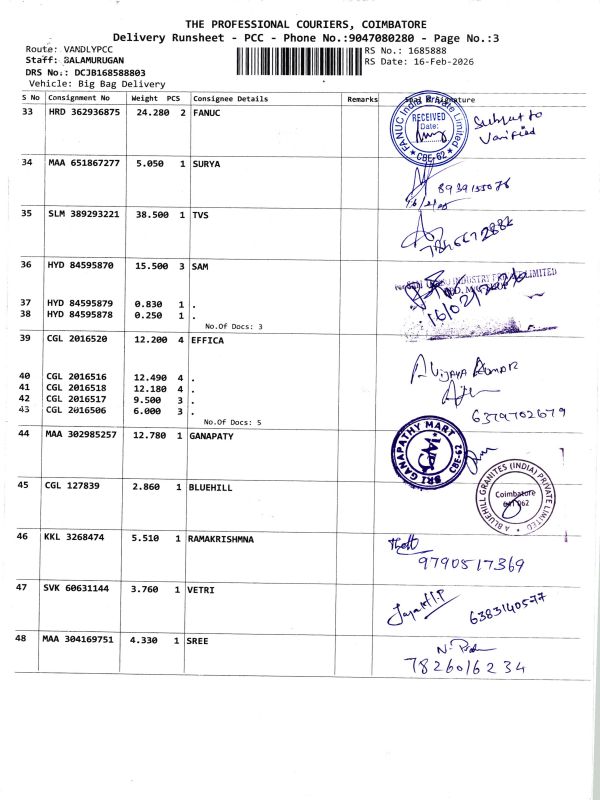 THE PROFESSIONAL COURIERS, COIMBATORE
Delivery Runsheet - PCC - Phone No.:9047080280 - Page No.:3
Route: VANDLYPCC
RS No.: 1685888
Staff: BALAMURUGAN
RS Date: 16-Feb-2026
DRS No.: DCJB168588803
Vehicle: Big Bag Delivery
S No Consignment No Weight PCS Consignee Details Remarks Seal & Signature
33 HRD 362936875 24.280 2 FANUC
FANUC India Private Limited
RECEIVED
Date:
* CBE-62 *
Subject to
Varified
34 MAA 651867277 5.050 1 SURYA
8939155076
35 SLM 389293221 38.500 1 TVS
36 HYD 84595870 15.500 3 SAM
INDUSTRY PRIVATE LIMITED
16/02/2026
37 HYD 84595879 0.830 1 .
38 HYD 84595878 0.250 1 .
No.Of Docs: 3
39 CGL 2016520 12.200 4 EFFICA
A Vijaya Kumar
40 CGL 2016516 12.490 4 .
41 CGL 2016518 12.180 4 .
42 CGL 2016517 9.500 3 .
43 CGL 2016506 6.000 3 .
6379702679
No.Of Docs: 5
44 MAA 302985257 12.780 1 GANAPATY
SRI GANAPATHY MART
CBE-62
45 CGL 127839 2.860 1 BLUEHILL
A BLUEHILL GRANITES (INDIA) PRIVATE LIMITED
Coimbatore
641 062
46 KKL 3268474 5.510 1 RAMAKRISHMNA
9790517369
47 SVK 60631144 3.760 1 VETRI
6383140577
48 MAA 304169751 4.330 1 SREE
7826016234